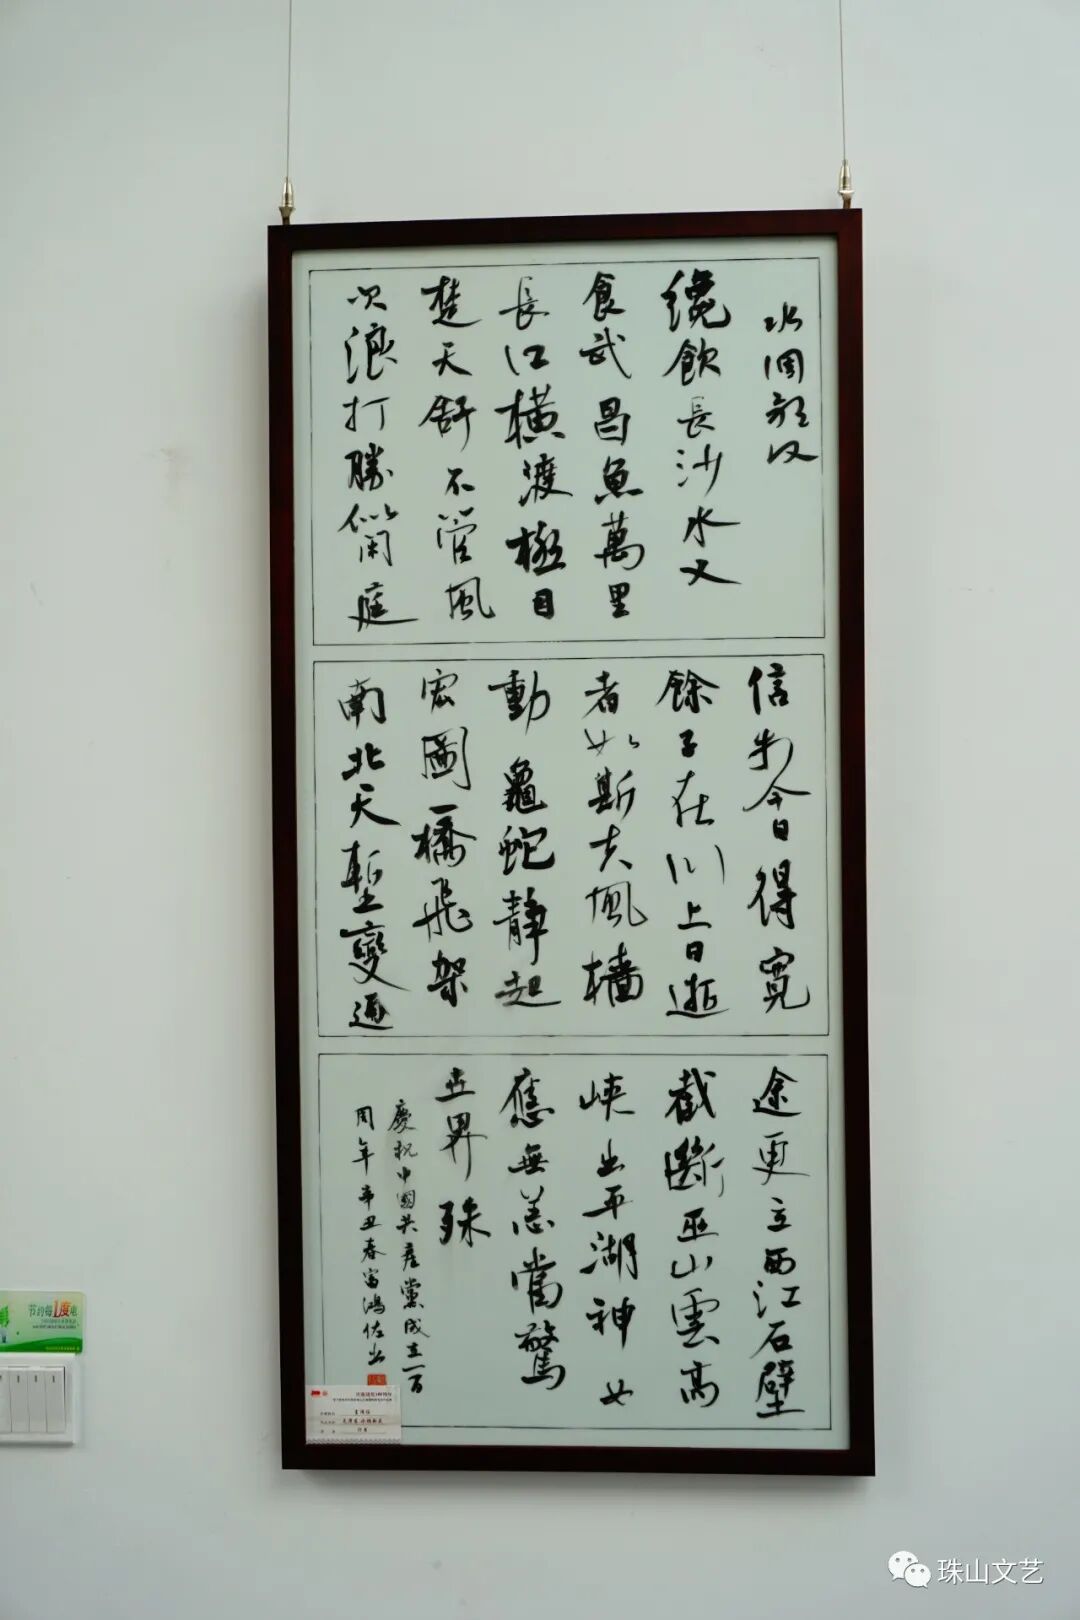 水調歌頭
纔飲長沙水又
食武昌魚萬里
長江橫渡極目
楚天舒不管風
吹浪打勝似閑庭
信步今日得寬
餘子在川上曰逝
者如斯夫風檣
動龜蛇靜起
宏圖一橋飛架
南北天塹變通
途更立西江石壁
截斷巫山雲高
峽出平湖神女
應無恙當驚
世界殊
慶祝中國共產黨成立一百
周年辛丑春富鴻佐书
节约每1度电
珠山文艺